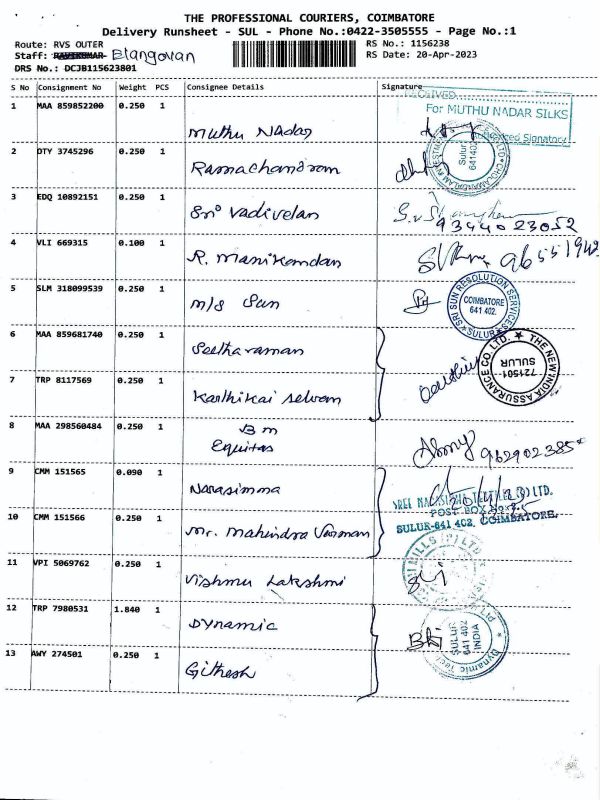 THE PROFESSIONAL COURIERS, COIMBATORE
Delivery Runsheet - SUL - Phone No.:0422-3505555 - Page No.:1
Route: RVS OUTER
RS No.: 1156238
Staff: RAVIKUMAR Elangovan
RS Date: 20-Apr-2023
DRS No.: DCJB115623801
S No Consignment No Weight PCS Consignee Details Signature
1 MAA 859852200 0.250 1 Muthu Nadar
RECEIVED
For MUTHU NADAR SILKS
Authorized Signatory
2 DTY 3745296 0.250 1 Ramachandram
Sulur
641402
3 EDQ 10892151 0.250 1 Sri Vadivelan
9344023052
4 VLI 669315 0.100 1 R. Manikandan
9655194
5 SLM 318099539 0.250 1 M/s Sun
SRI SUN RESOLUTION SERVICES
COIMBATORE
641 402.
SULUR
6 MAA 859681740 0.250 1 Seetharaman
THE NEW INDIA ASSURANCE CO. LTD.
721501
SULUR
7 TRP 8117569 0.250 1 Karthikai selvam
8 MAA 298560484 0.250 1 BM
Equitas
962902385
9 CMM 151565 0.090 1 Narasimma
SULUR-641 402, COIMBATORE.
POST BOX
10 CMM 151566 0.250 1 Mr. Mahindra Varman
11 VPI 5069762 0.250 1 Vishmu Lakshmi
MILLS (P) LTD
12 TRP 7980531 1.840 1 Dynamic
SULUR
641 402
INDIA
Dynamic Tec
Ltd
13 AWY 274501 0.250 1 Githesh